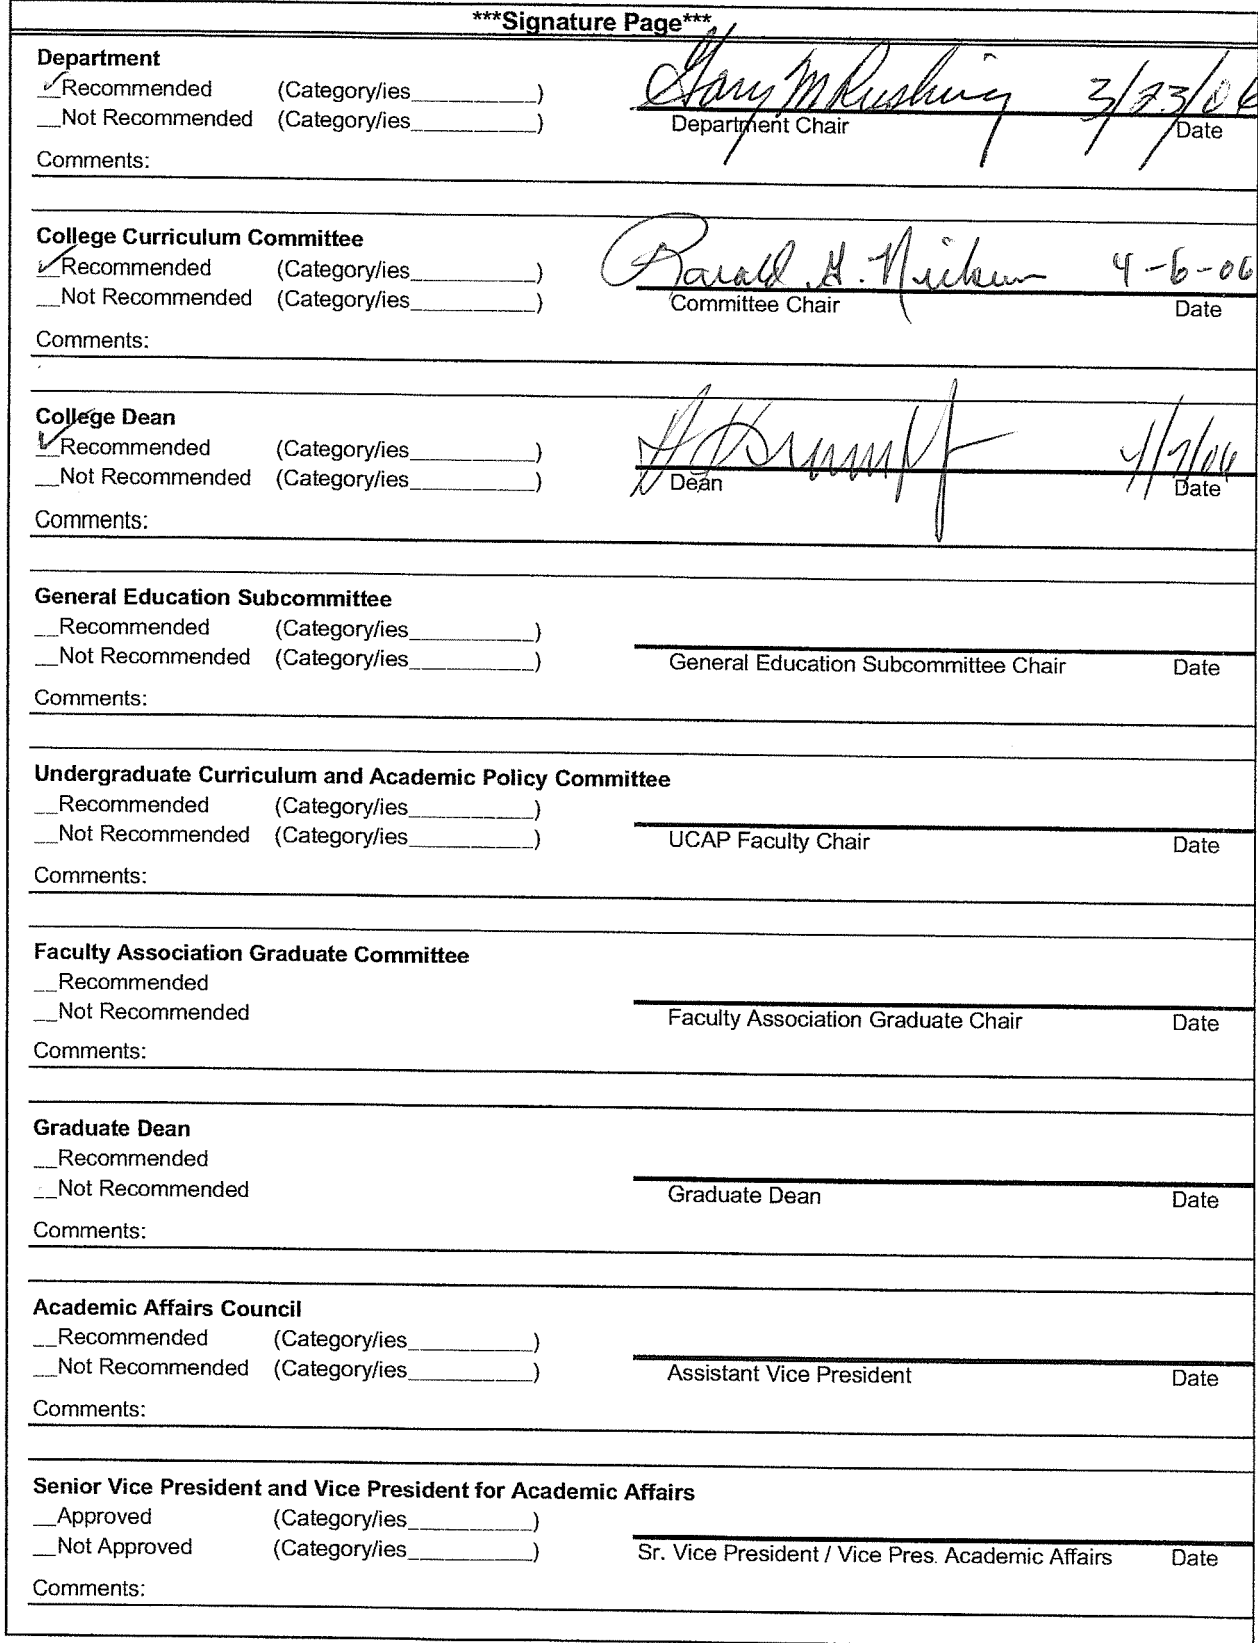 ***Signature Page***
Department
✓Recommended (Category/ies__________)
__Not Recommended (Category/ies__________)
Gary M Rushing 3/23/06
Department Chair Date
Comments:
College Curriculum Committee
✓Recommended (Category/ies__________)
__Not Recommended (Category/ies__________)
H. 4-6-06
Committee Chair Date
Comments:
College Dean
✓Recommended (Category/ies__________)
__Not Recommended (Category/ies__________)
Dean Date
Comments:
General Education Subcommittee
__Recommended (Category/ies__________)
__Not Recommended (Category/ies__________)
General Education Subcommittee Chair Date
Comments:
Undergraduate Curriculum and Academic Policy Committee
__Recommended (Category/ies__________)
__Not Recommended (Category/ies__________)
UCAP Faculty Chair Date
Comments:
Faculty Association Graduate Committee
__Recommended
__Not Recommended
Faculty Association Graduate Chair Date
Comments:
Graduate Dean
__Recommended
__Not Recommended
Graduate Dean Date
Comments:
Academic Affairs Council
__Recommended (Category/ies__________)
__Not Recommended (Category/ies__________)
Assistant Vice President Date
Comments:
Senior Vice President and Vice President for Academic Affairs
__Approved (Category/ies__________)
__Not Approved (Category/ies__________)
Sr. Vice President / Vice Pres. Academic Affairs Date
Comments: